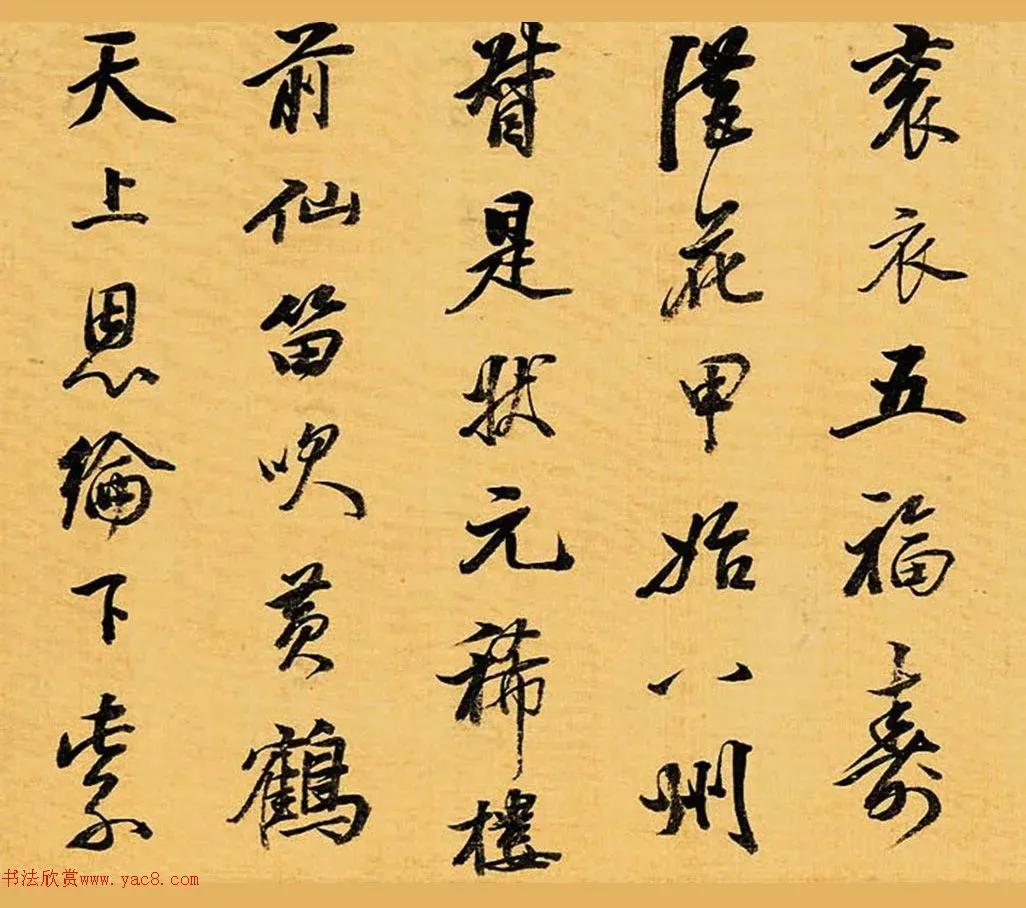 袞衣五福壽
從花甲始八州
督是狀元稀樓
前仙笛吹黃鶴
天上恩綸下紫
书法欣赏www.yac8.com